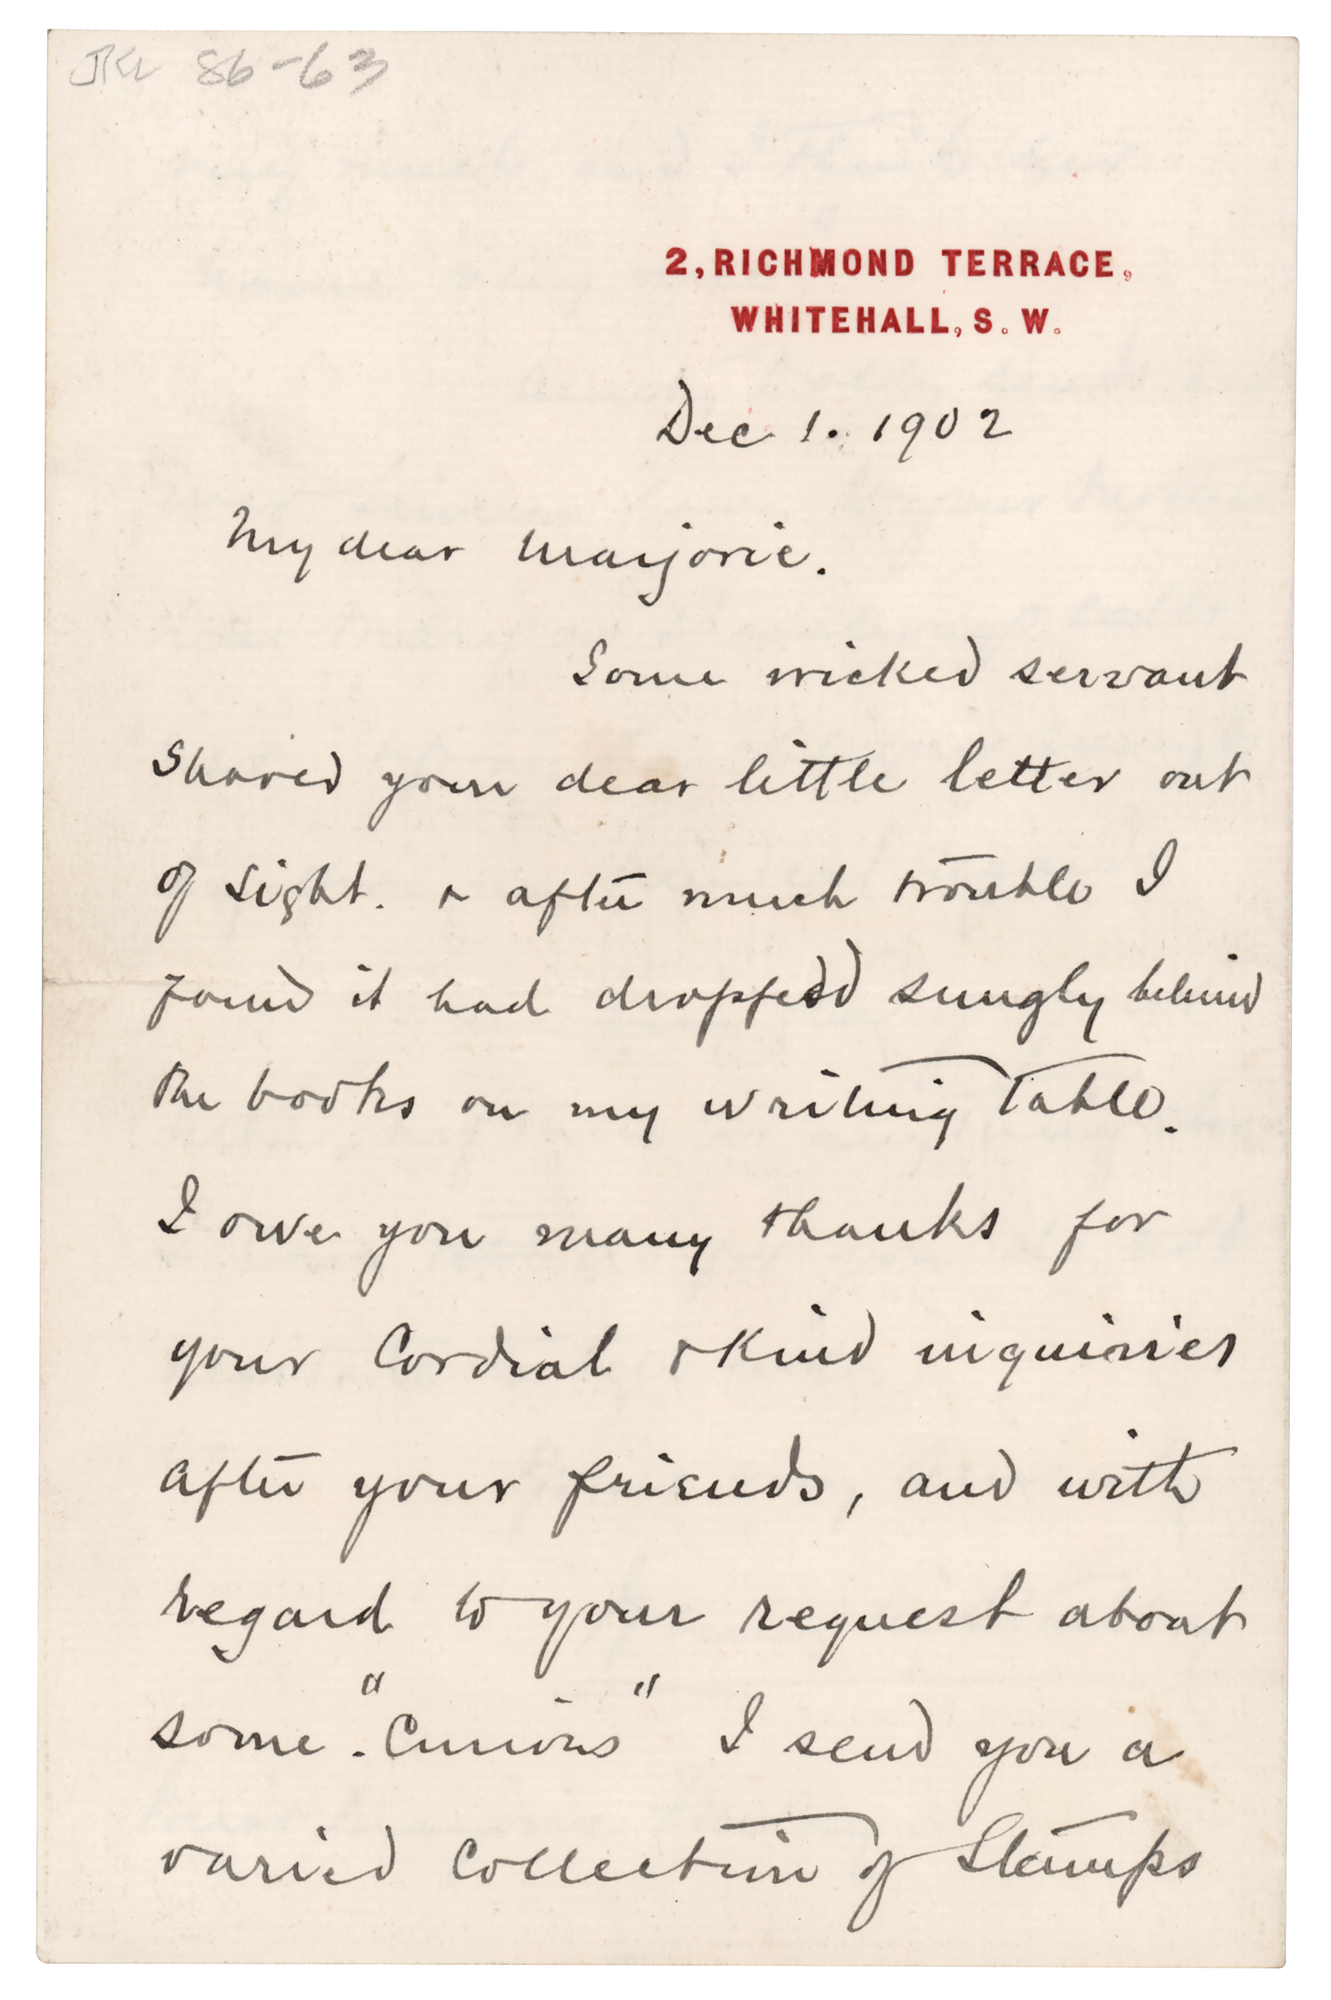 86-63
2, RICHMOND TERRACE,
WHITEHALL, S. W.
Dec 1. 1902
My dear Marjorie.
Some wicked servant
shoved your dear little letter out
of sight. & after much trouble I
found it had dropped snugly behind
the books on my writing table.
I owe you many thanks for
your cordial & kind inquiries
after your friends, and with
regard to your request about
some "Curios" I send you a
varied collection of Stamps